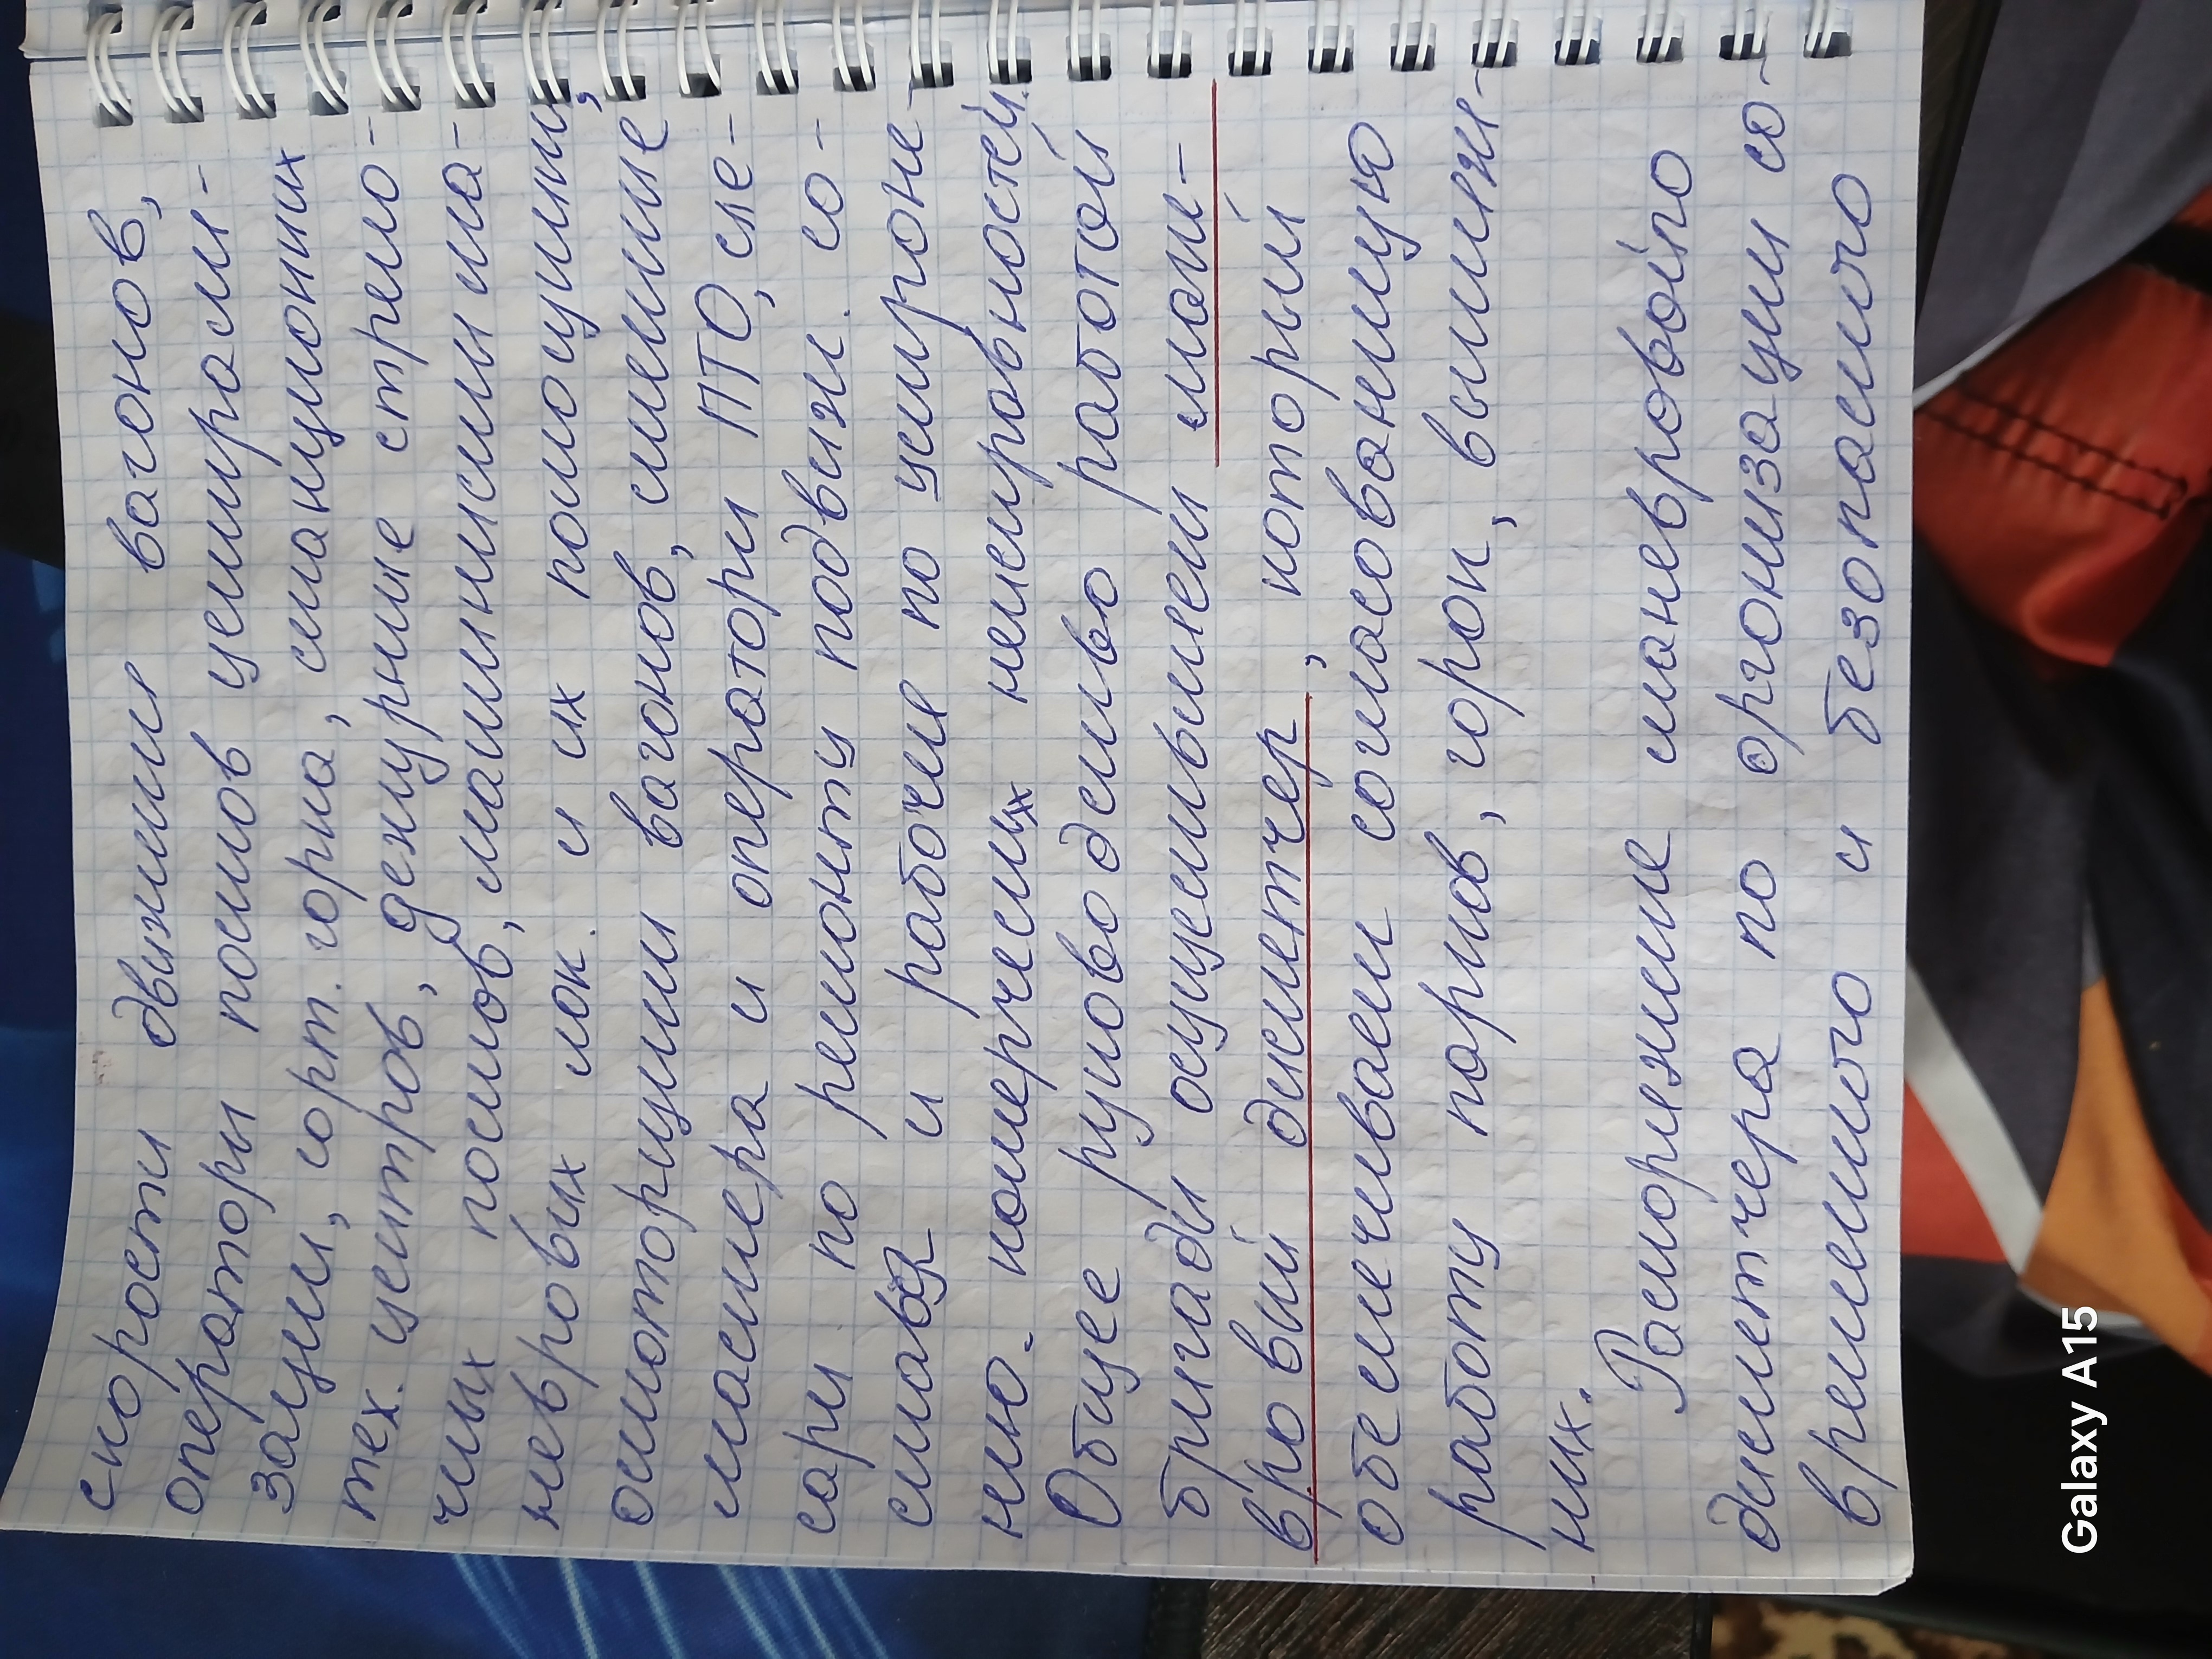 скорости движения вагонов,
операторы постов централи-
зации, сорт. горка, станционных
тех. центров, дежурные стрело-
чных постов, машинисты ма-
невровых лок. и их помощники,
осмотрщики вагонов, сменные
мастера и оператори ПТО, сле-
сари по ремонту подвижн. со-
става и рабочие по устране-
нию коммерческих неисправностей.
Общее руководство работой
бригады осуществляет мане-
вровый диспетчер, который
обеспечивает согласованную
работу парков, горок, вытяж-
ных.
Распоряжение маневрового
диспетчера по организации со-
временного и безопасного
Galaxy A15